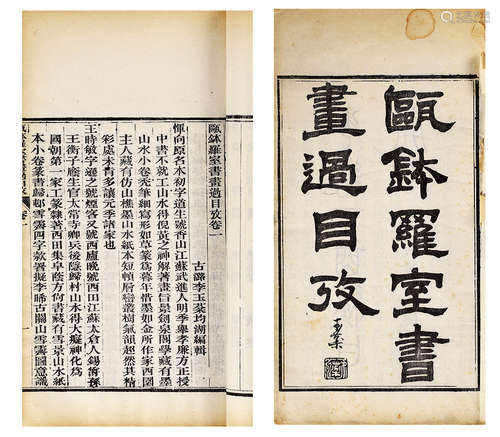 甌鉢羅室書
畫過目攷
玉棻
甌鉢羅室書畫過目攷卷一
古潞李玉棻均湖編輯
惲向原名本初字道生號香山江蘇武進人明季舉孝廉方正授
中書不就工山水得倪黃之神解著畫旨景劍泉閣學藏有墨
山水小卷禿筆細寫形如草篆爲暮年惜墨如金所作家西園
主人藏有仿山樵墨山水紙本短幀層巒叢樹氣韻超然其精
彩處未肯多讓元季諸家也
王時敏字遜之號煙客又號西廬晚號西田江蘇太倉人錫爵孫
王衡子廕生官太常寺卿兵後隱歸村山水得大癡神化爲
國朝第一家工篆隸著西田集阜蔭方伯書藏有雪景山水紙
本小卷篆書歸鄔雪霽四字款署擬李晞古關山雪霽圖意識
卷一